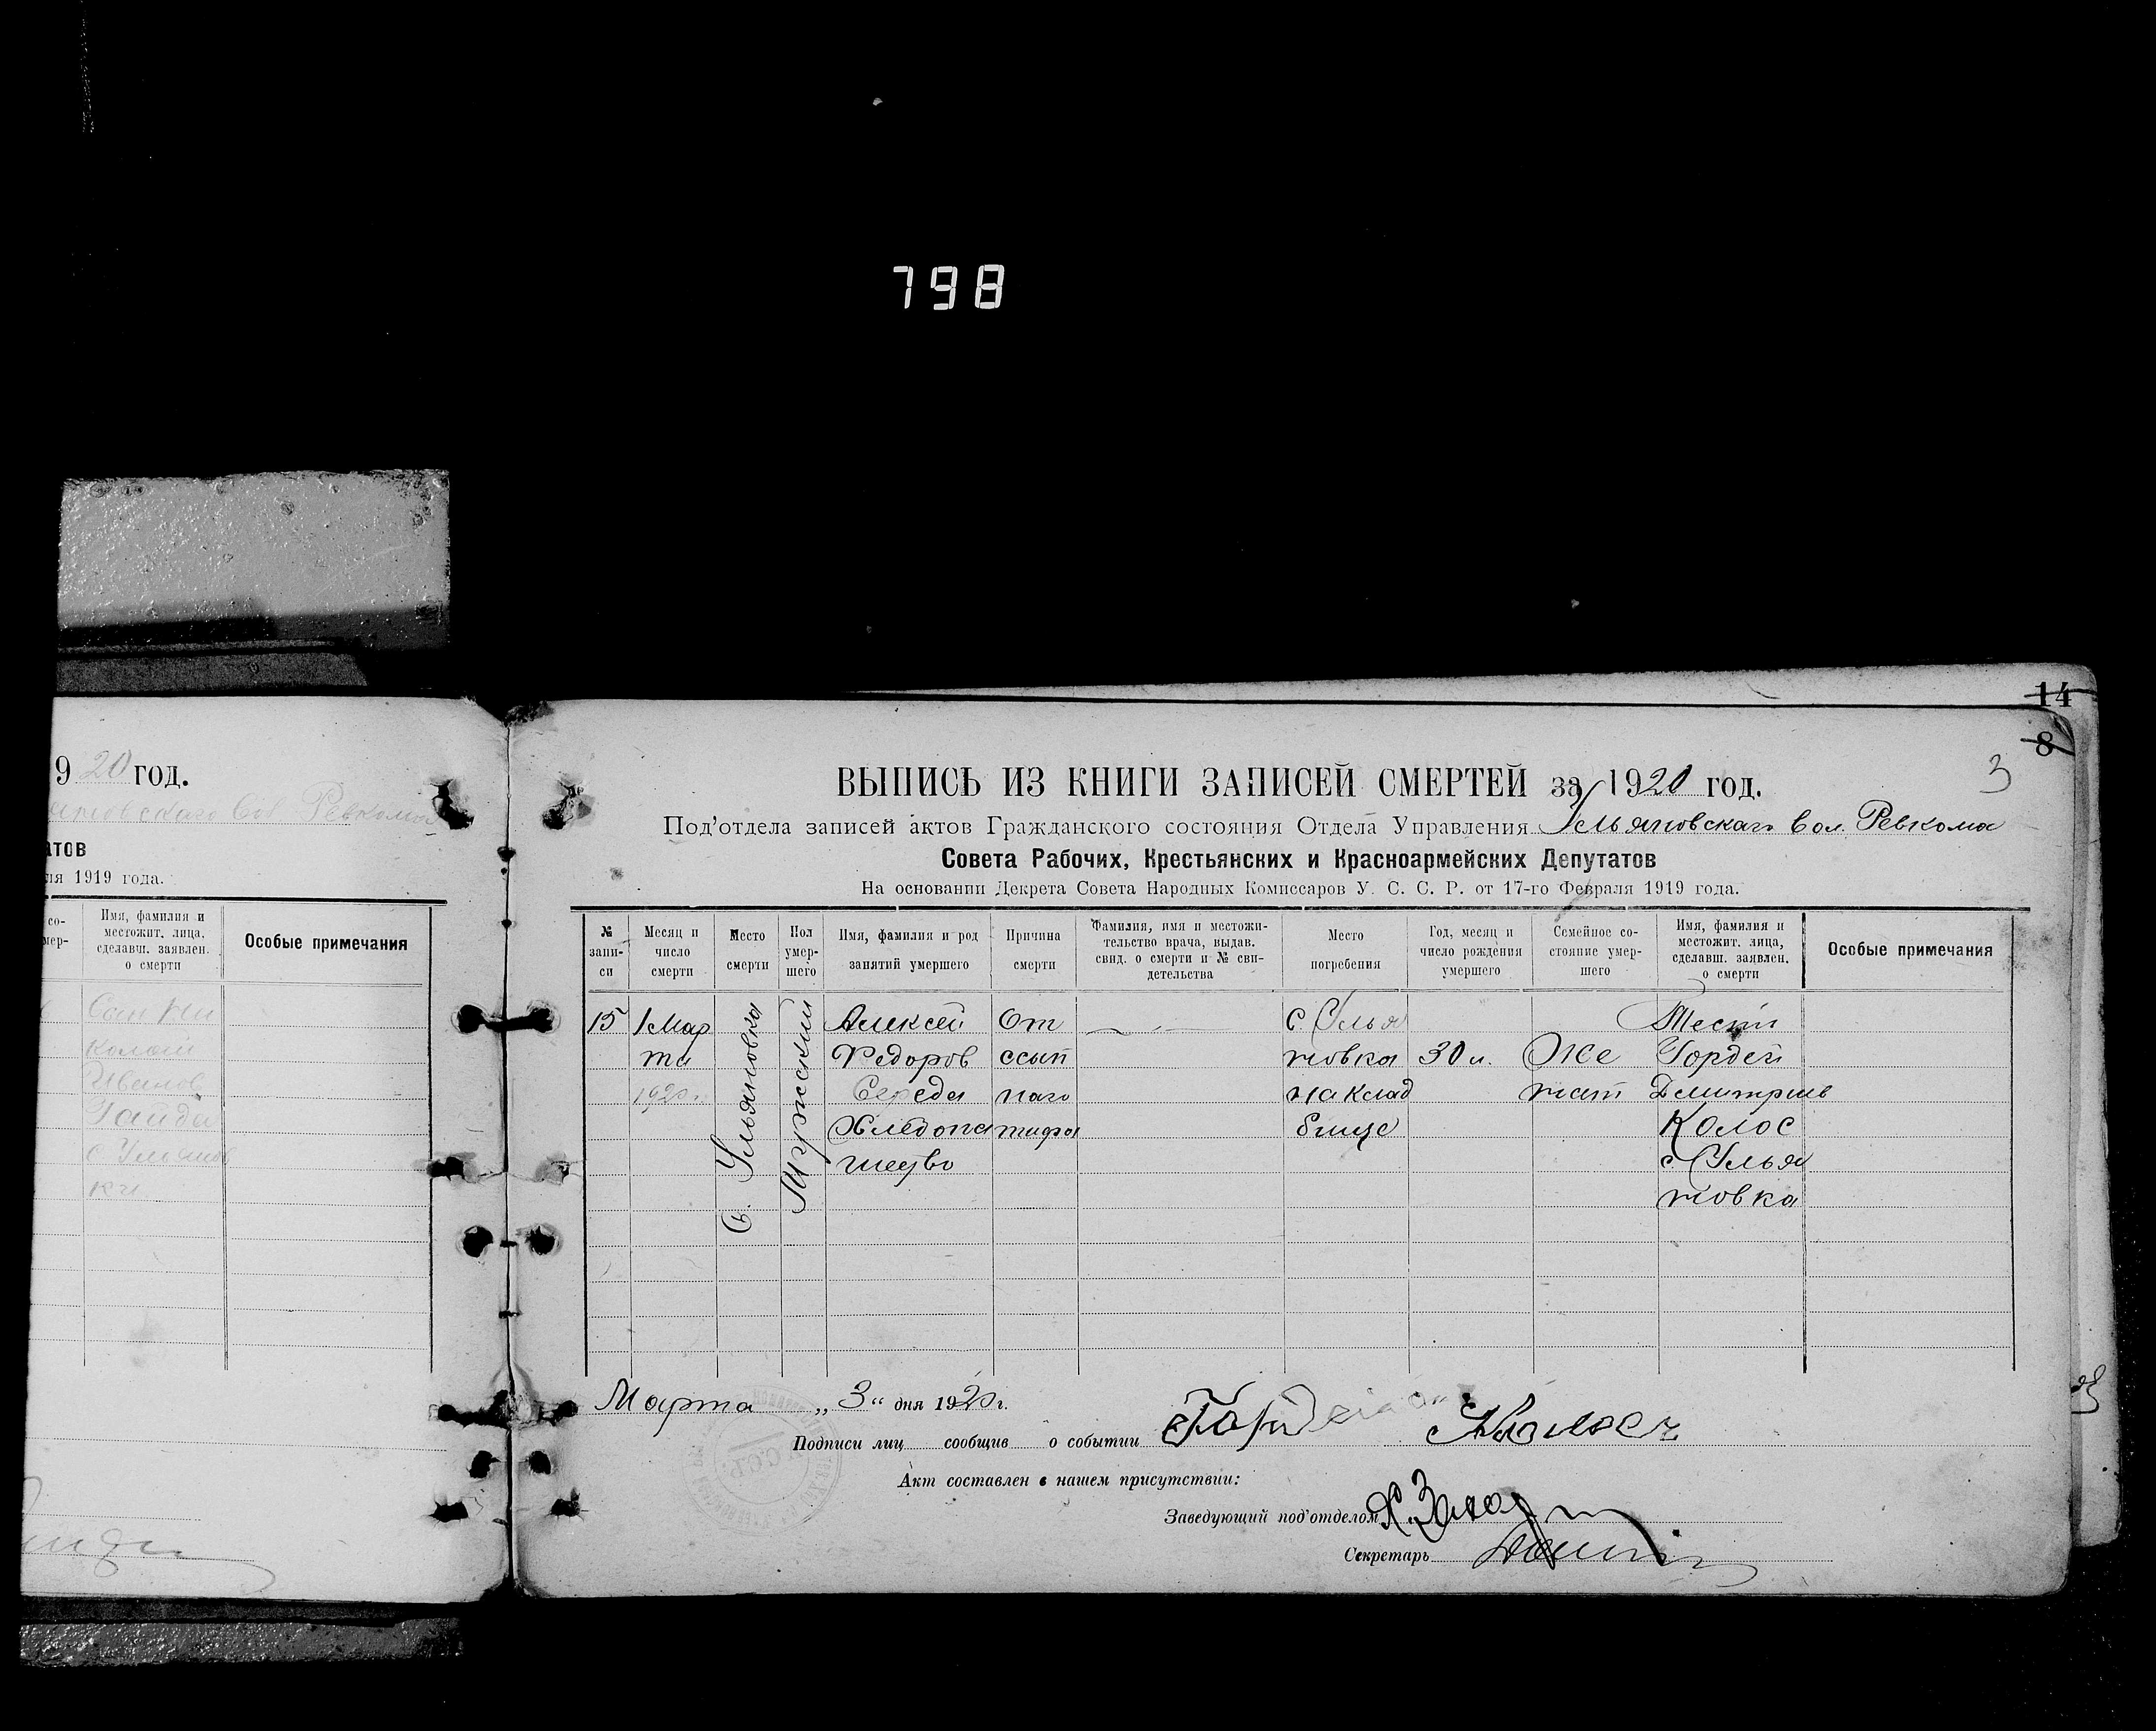 798
14
8
3
9 20 год.
Ревкома
атов
ля 1919 года.
со-
мер-
Имя, фамилия и
местожит. лица,
сделавш. заявлен.
о смерти
Особые примечания
Иванов
Гайда
ки
ВЫПИСЬ ИЗ КНИГИ ЗАПИСЕЙ СМЕРТЕЙ за 1920 год.
Под'отдела записей актов Гражданского состояния Отдела Управления Ульяновскаго Вол. Ревкома
Совета Рабочих, Крестьянских и Красноармейских Депутатов
На основании Декрета Совета Народных Комиссаров У. С. С. Р. от 17-го Февраля 1919 года.
№
запи-
си
Месяц и
число
смерти
Место
смерти
Пол
умер-
шего
Имя, фамилия и род
занятий умершего
Причина
смерти
Фамилия, имя и местожи-
тельство врача, выдав.
свид. о смерти и № сви-
детельства
Место
погребения
Год, месяц и
число рождения
умершего
Семейное со-
стояние умер-
шего
Имя, фамилия и
местожит. лица,
сделавш. заявлен.
о смерти
Особые примечания
15
1 Мар
та
1920 г.
С. Ульяновка
Мужский
Алексей
Федоров
Середа
Хлебопа
шество
От
ссып
наго
тифа
с Улья
новка
на клад
бище
30 л.
Же
нат
Тесть
Гордей
Дмитриев
Колос
с. Улья
новка
Марта „3“ дня 1920 г.
Подписи лиц сообщив о событии Колос
Акт составлен в нашем присутствии:
Заведующий под'отделом
Секретарь